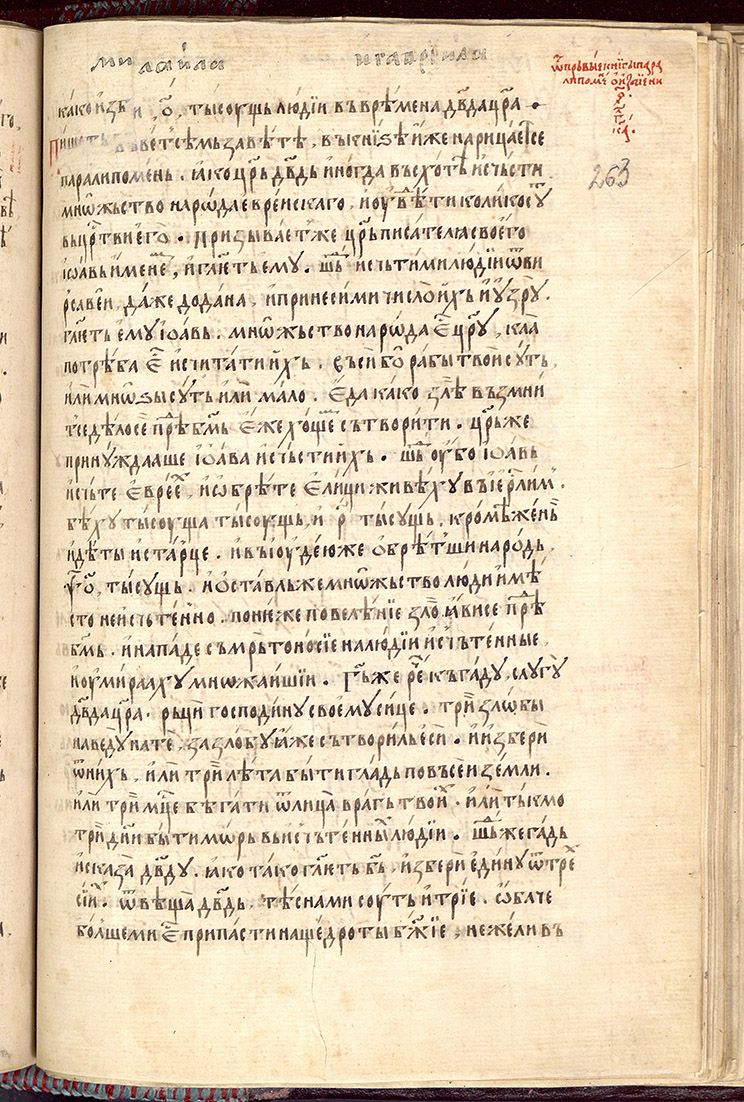 михаила и гаврїила
ѿ прьвые книгы пара
263
како изби, ѻ҃, тысоущь людїи въ врѣмена дв҃да цр҃ра.
Пишеть въ ветсѣмь завѣтѣ, въ кнізѣ иже нарицает се
паралипомень. ꙗко цр҃ь дв҃дь иногда въсхотѣ исчьсти
мнѡжьство нарѡда еврейскаго, и оувѣти колико соу
вь цр҃тви его. призывает же цр҃ь писателꙗ своего
іѡавь именѣ, и гл҃еть ему. шь исчьти ми людїи ѿ ви
рсавеи, даже до дана, и принеси ми число ихь и узру.
гл҃еть ему іѡавь. мнѡжьство нарѡда ѥ цр҃у, каа
потрѣба ѥ исчитати ихь. въси бо рабы твои суть,
или мнѡзы суть или мало. еда како злѣ възмни
т се дѣло се прѣ бм҃ь еже хощеши сътворити. цр҃ь же
принуждааше іѡава исчьсти ихь. шь оубо іѡавь
исчьте еврее, и ѡбрѣте елици живѣху въ іер҃лимѣ.
бѣху тысоуща тысоущь, и р҃ тысущь, кромѣ жень
и дѣты и старце. и въ іоудеи же обрѣт ши народь
у҃ѻ, тысущь. и ѡставль же мнѡжьство люди и мѣ
сто неисчьтенно. понеже повелѣнїе зло ꙗви се прѣ
бм҃ь. и нападе съмрьтоносїе на людїи исчьтенные,
и оумирааху мнѡжаишїи. Гь҃ же рече къ гаду, слугу
дв҃да цр҃ра. рьци господину своему сице. три злѡбы
наведу на те, за злобу ꙗже сътвориль еси. и избери
ѿ нихь, или три лѣта быти гладь по въсеи земли.
или три мц҃е бѣгати ѿ лица врагь твои. или тькмо
три дн҃и быти мѡрь вь исчьтенныхь людїи. шь же гадь
исказа дв҃ду. ꙗко тако гл҃еть бь҃, избери едину ѿ трех
сїих. ѿвѣща дв҃дь, тѣсна ми соуть и трїе. ѡбаче
болше ми ѥ припасти на щедроты бж҃їе, нежели въ